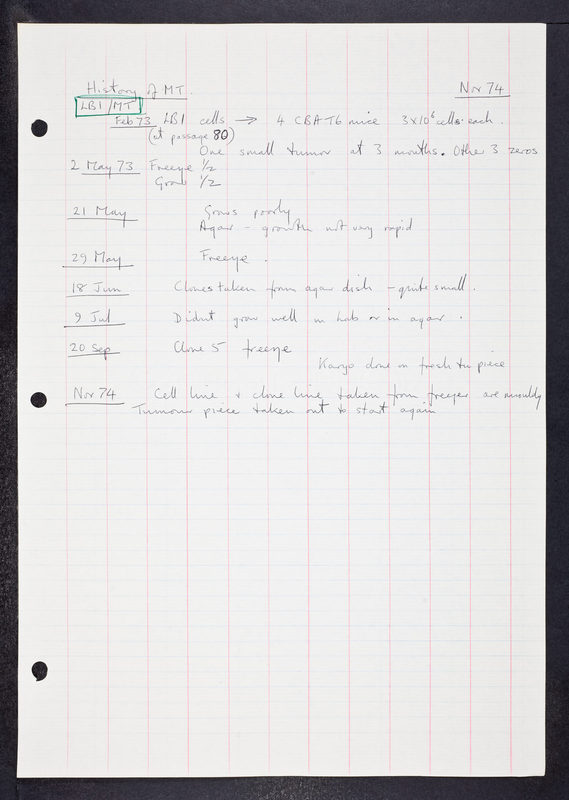 History of MT. Nov 74
LB1/MT
Feb 73 LB1 cells → 4 CBAT6 mice 3x10⁶ cells each.
(at passage 80)
One small tumor at 3 months. Other 3 zeros
2 May 73 Freeze 1/2
Grow 1/2
21 May Grows poorly
Agar - growth not very rapid
29 May Freeze.
18 Jun Clones taken from agar dish - quite small.
9 Jul Didnt grow well in lab or in agar.
20 Sep Clone 5 freeze
Karyo done on fresh tu piece
Nov 74 Cell line & clone line, taken from freezer are mouldy
Tumour piece taken out to start again